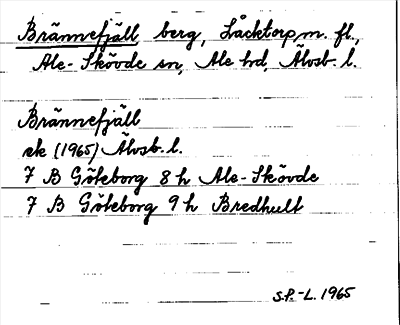 Brännefjäll, berg, Låcktorp m. fl.,
Ale-Skövde sn, Ale hd, Älvsb. l.
Brännefjäll
ek (1965) Älvsb. l.
7 B Göteborg 8 h Ale-Skövde
7 B Göteborg 9 h Bredhult
S.P.-L. 1965